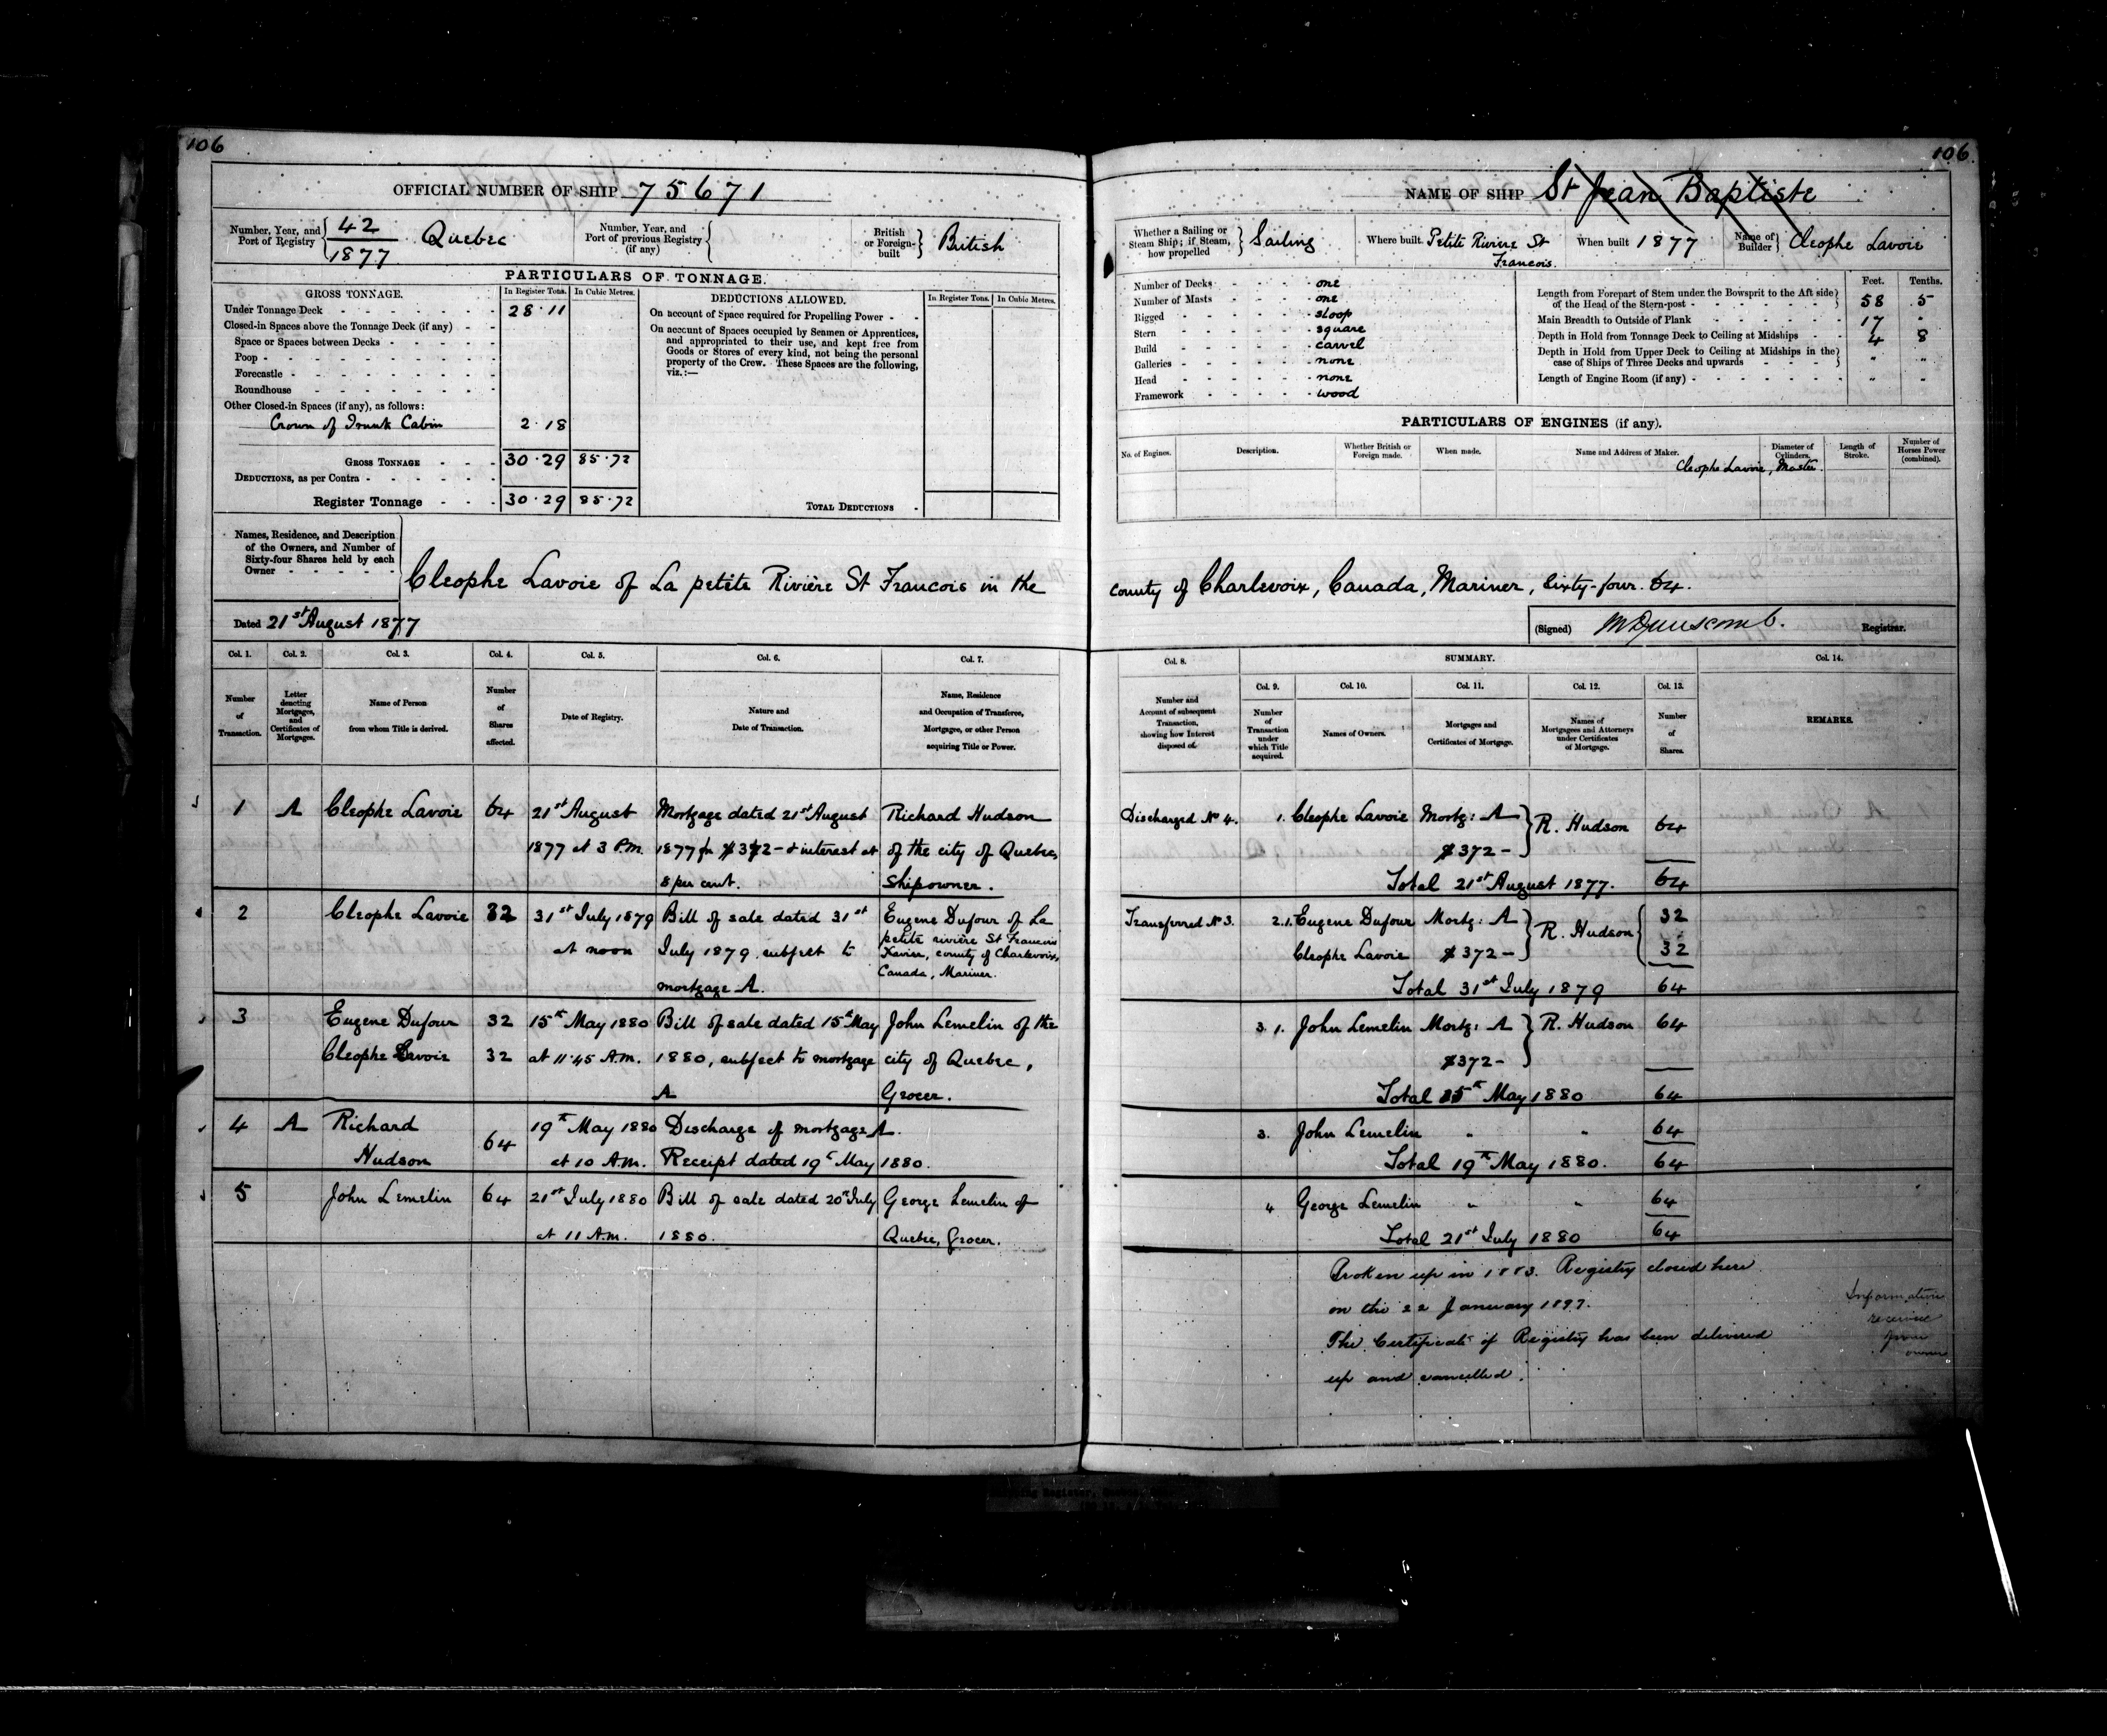 106
106
OFFICIAL NUMBER OF SHIP 75671
Number, Year, and Port of Registry 42 1877 Quebec
Number, Year, and Port of previous Registry (if any)
British or Foreign-built British
PARTICULARS OF TONNAGE.
GROSS TONNAGE.
In Register Tons. In Cubic Metres.
DEDUCTIONS ALLOWED.
In Register Tons. In Cubic Metres.
Under Tonnage Deck 28.11
Closed-in Spaces above the Tonnage Deck (if any)
Space or Spaces between Decks
Poop
Forecastle
Roundhouse
Other Closed-in Spaces (if any), as follows:
Crown of Trunk Cabin 2.18
GROSS TONNAGE 30.29 85.72
DEDUCTIONS, as per Contra
Register Tonnage 30.29 85.72
On account of Space required for Propelling Power
On account of Spaces occupied by Seamen or Apprentices,
and appropriated to their use, and kept free from
Goods or Stores of every kind, not being the personal
property of the Crew. These Spaces are the following,
viz.:—
TOTAL DEDUCTIONS
NAME OF SHIP St Jean Baptiste
Whether a Sailing or Steam Ship; if Steam, how propelled Sailing
Where built. Petite Rivière St Francois.
When built 1877
Name of Builder Cleophe Lavoie
Number of Decks one
Number of Masts one
Rigged sloop
Stern square
Build carvel
Galleries none
Head none
Framework wood
Feet. Tenths.
Length from Forepart of Stem under the Bowsprit to the Aft side of the Head of the Stern-post 58 .5
Main Breadth to Outside of Plank 17
Depth in Hold from Tonnage Deck to Ceiling at Midships 4 8
Depth in Hold from Upper Deck to Ceiling at Midships in the case of Ships of Three Decks and upwards " "
Length of Engine Room (if any) " "
PARTICULARS OF ENGINES (if any).
No. of Engines. Description. Whether British or Foreign made. When made. Name and Address of Maker. Diameter of Cylinders. Length of Stroke. Number of Horses Power (combined).
Cleophe Lavoie, Master.
Names, Residence, and Description
of the Owners, and Number of
Sixty-four Shares held by each
Owner
Cleophe Lavoie of La petite Rivière St Francois in the county of Charlevoix, Canada, Mariner, Sixty-four. 64.
Dated 21st August 1877
(Signed) Registrar.
Col. 1. Col. 2. Col. 3. Col. 4. Col. 5. Col. 6. Col. 7.
Number of Transaction.
Letter denoting Mortgages, and Certificates of Mortgages.
Name of Person from whom Title is derived.
Number of Shares affected.
Date of Registry.
Nature and Date of Transaction.
Name, Residence and Occupation of Transferee, Mortgagee, or other Person acquiring Title or Power.
Col. 8. SUMMARY. Col. 14.
Col. 9. Col. 10. Col. 11. Col. 12. Col. 13.
Number and Account of subsequent Transaction, showing how Interest disposed of.
Number of Transaction under which Title acquired.
Names of Owners.
Mortgages and Certificates of Mortgage.
Names of Mortgagees and Attorneys under Certificates of Mortgage.
Number of Shares.
REMARKS.
1 A Cleophe Lavoie 64 21st August Mortgage dated 21st August Richard Hudson
1877 at 3 P.M. 1877 for $372- & interest at of the city of Quebec,
8 per cent. Shipowner.
Discharged No 4. 1. Cleophe Lavoie Mortg: A R. Hudson 64
$372-
Total 21st August 1877. 64
2 Cleophe Lavoie 32 31st July 1879 Bill of sale dated 31st Eugene Dufour of La
at noon July 1879 subject to petite rivière St Francois
mortgage A. Xavier, county of Charlevoix,
Canada, Mariner.
Transferred No 3. 2.1. Eugene Dufour Mortg: A R. Hudson 32
Cleophe Lavoie $372- 32
Total 31st July 1879 64
3 Eugene Dufour 32 15th May 1880 Bill of sale dated 15th May John Lemelin of the
Cleophe Lavoie 32 at 11.45 A.M. 1880, subject to mortgage city of Quebec,
A Grocer.
3. 1. John Lemelin Mortg: A R. Hudson 64
$372-
Total 15th May 1880 64
4 A Richard 64 19th May 1880 Discharge of mortgage A.
Hudson at 10 A.M. Receipt dated 19th May 1880.
3. John Lemelin " " 64
Total 19th May 1880. 64
5 John Lemelin 64 21st July 1880 Bill of sale dated 20th July George Lemelin of
at 11 A.M. 1880. Quebec, Grocer.
" George Lemelin " " 64
Total 21st July 1880 64
Broken up in 1883. Registry closed here
on the 22 January 1897.
The Certificate of Registry has been delivered
up and cancelled.
Information
receive
from
owner